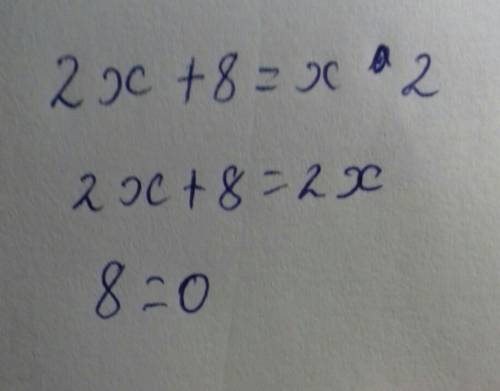 2x + 8 = x • 2
2x + 8 = 2x
8 = 0